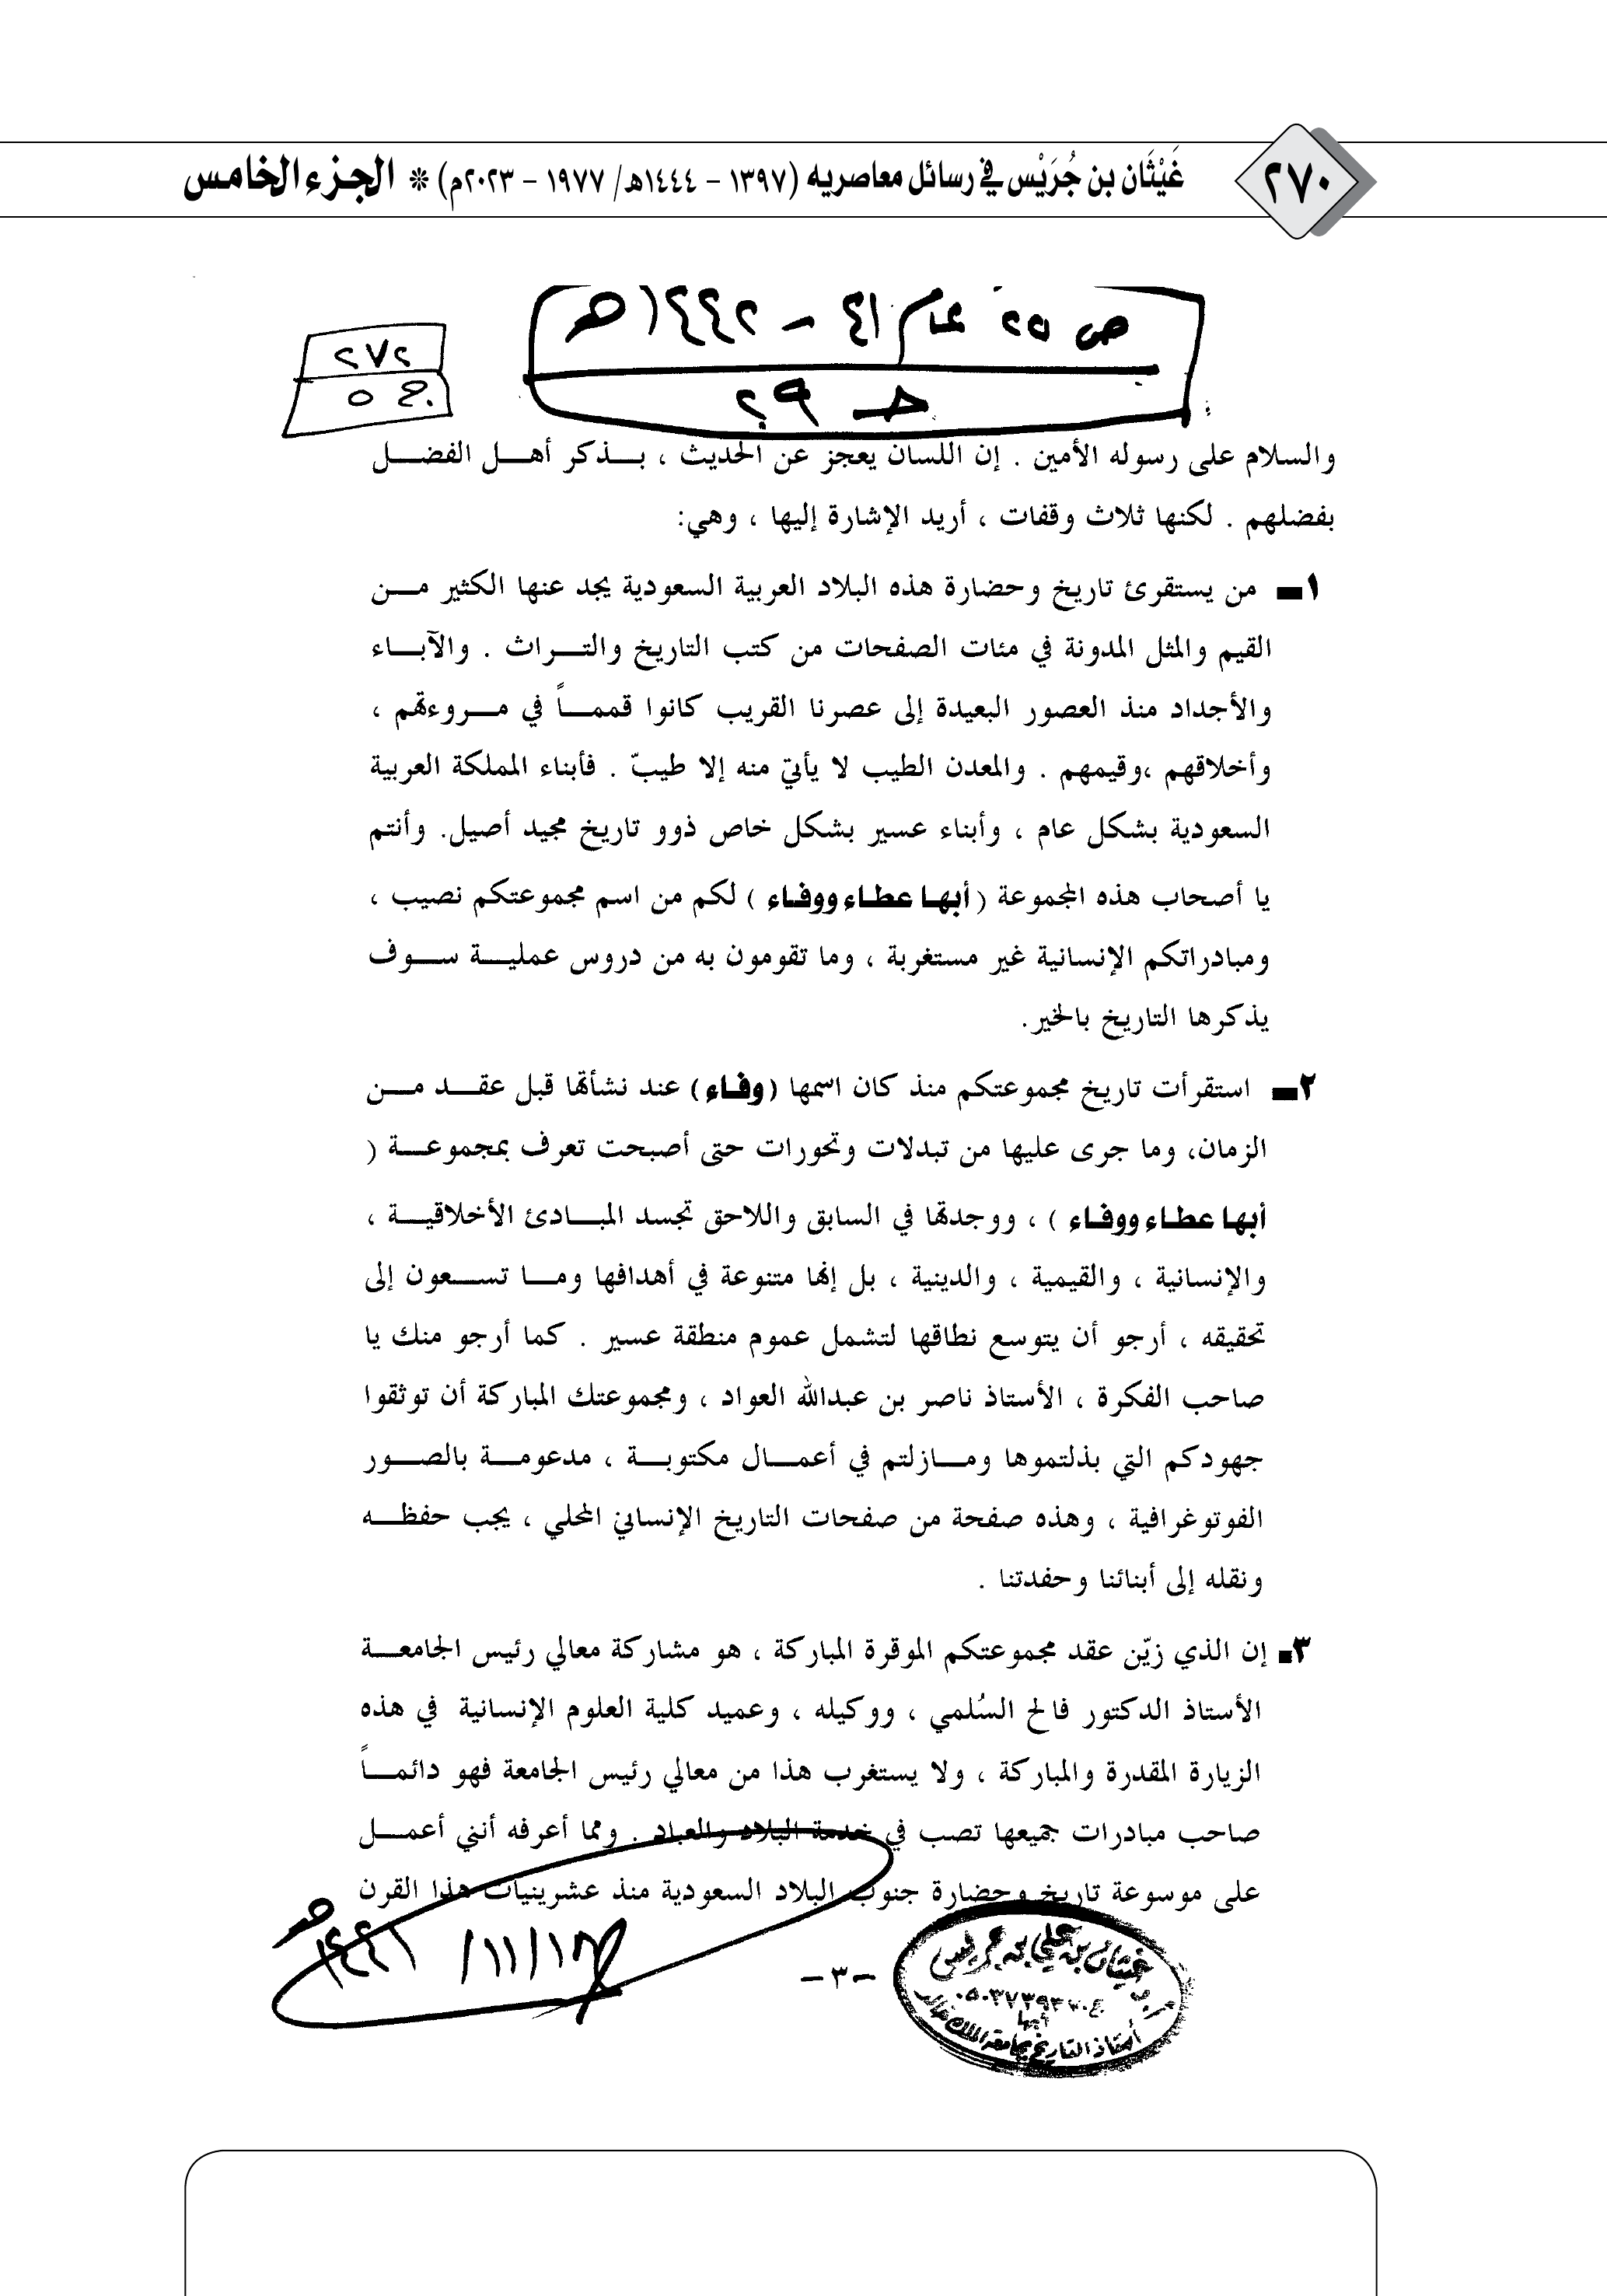 ٢٧٠
غَيْثَان بن جُرَيْس في رسائل معاصريه (١٣٩٧ - ١٤٤٤هـ/ ١٩٧٧ - ٢٠٢٣م) * الجزء الخامس
ص ٢٥ عام ٤١ - ١٤٤٢هـ
حـ ٢٩
٢٧٢
ج ٥
والسلام على رسوله الأمين . إن اللسان يعجز عن الحديث ، بـــذكر أهـــل الفضـــل
بفضلهم . لكنها ثلاث وقفات ، أريد الإشارة إليها ، وهي:
١ــ من يستقرئ تاريخ وحضارة هذه البلاد العربية السعودية يجد عنها الكثير مـــن
القيم والمثل المدونة في مئات الصفحات من كتب التاريخ والتـــراث . والآبـــاء
والأجداد منذ العصور البعيدة إلى عصرنا القريب كانوا قممـــاً في مـــروءتهم ،
وأخلاقهم ،وقيمهم . والمعدن الطيب لا يأتي منه إلا طيبّ . فأبناء المملكة العربية
السعودية بشكل عام ، وأبناء عسير بشكل خاص ذوو تاريخ مجيد أصيل. وأنتم
يا أصحاب هذه المجموعة ( أبهـا عطـاء ووفـاء ) لكم من اسم مجموعتكم نصيب ،
ومبادراتكم الإنسانية غير مستغربة ، وما تقومون به من دروس عمليـــة ســـوف
يذكرها التاريخ بالخير.
٢ــ استقرأت تاريخ مجموعتكم منذ كان اسمها (وفـاء) عند نشأتها قبل عقـــد مـــن
الزمان، وما جرى عليها من تبدلات وتحورات حتى أصبحت تعرف بمجموعـــة (
أبهـا عطـاء ووفـاء ) ، ووجدتها في السابق واللاحق تجسد المبـــادئ الأخلاقيـــة ،
والإنسانية ، والقيمية ، والدينية ، بل إنها متنوعة في أهدافها ومـــا تســـعون إلى
تحقيقه ، أرجو أن يتوسع نطاقها لتشمل عموم منطقة عسير . كما أرجو منك يا
صاحب الفكرة ، الأستاذ ناصر بن عبدالله العواد ، ومجموعتك المباركة أن توثقوا
جهودكم التي بذلتموها ومـــازلتم في أعمـــال مكتوبـــة ، مدعومـــة بالصـــور
الفوتوغرافية ، وهذه صفحة من صفحات التاريخ الإنساني المحلي ، يجب حفظـــه
ونقله إلى أبنائنا وحفدتنا .
٣ــ إن الذي زيّن عقد مجموعتكم الموقرة المباركة ، هو مشاركة معالي رئيس الجامعـــة
الأستاذ الدكتور فالح السُلمي ، ووكيله ، وعميد كلية العلوم الإنسانية في هذه
الزيارة المقدرة والمباركة ، ولا يستغرب هذا من معالي رئيس الجامعة فهو دائمـــاً
صاحب مبادرات جميعها تصب في خدمة البلاد والعباد . ومما أعرفه أنني أعمـــل
على موسوعة تاريخ وحضارة جنوب البلاد السعودية منذ عشرينيات هذا القرن
١٨/١١/١٤٤١هـ
-٣-
غيثان بن علي بن جريس
أبها
أستاذ التاريخ بجامعة الملك خالد